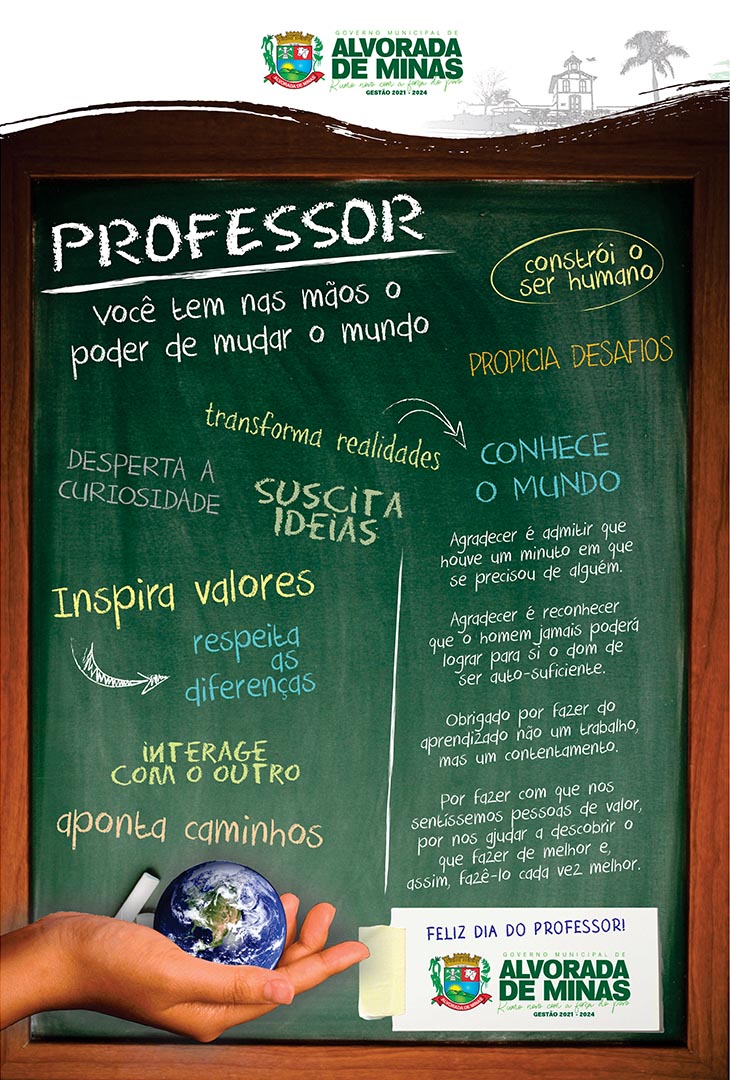 GOVERNO MUNICIPAL DE
ALVORADA
DE MINAS
Rumo novo com a força do povo
GESTÃO 2021 - 2024
ALVORADA DE MINAS
PROFESSOR
você tem nas mãos o
poder de mudar o mundo
constrói o
ser humano
PROPICIA DESAFIOS
transforma realidades
CONHECE
O MUNDO
DESPERTA A
CURIOSIDADE
SUSCITA
IDEIAS
Inspira valores
respeita
as
diferenças
INTERAGE
COM O OUTRO
aponta caminhos
Agradecer é admitir que
houve um minuto em que
se precisou de alguém.
Agradecer é reconhecer
que o homem jamais poderá
lograr para si o dom de
ser auto-suficiente.
Obrigado por fazer do
aprendizado não um trabalho,
mas um contentamento.
Por fazer com que nos
sentíssemos pessoas de valor,
por nos ajudar a descobrir o
que fazer de melhor e,
assim, fazê-lo cada vez melhor.
FELIZ DIA DO PROFESSOR!
GOVERNO MUNICIPAL DE
ALVORADA
DE MINAS
Rumo novo com a força do povo
GESTÃO 2021 - 2024
ALVORADA DE MINAS